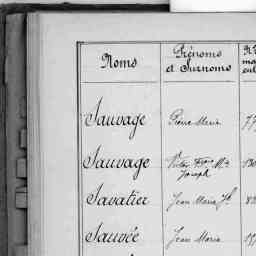 Noms
Prénoms
et Surnoms
Sauvage
Pierre Marie
Sauvage
Victor Fçois Mie
Joseph
Savatier
Jean Marie Jh
Sauvée
Jean Marie